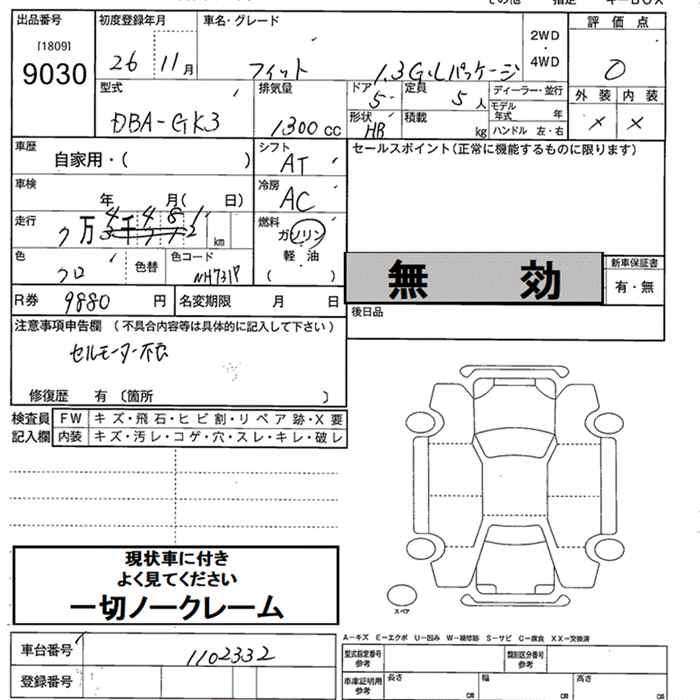 出品番号 初度登録年月 車名・グレード 2WD・4WD 評価点
[1809]
9030 26 11月 フィット 1.3G・Lパッケージ 0
外装 内装
× ×
型式 排気量 ドア 定員 ディーラー・並行
DBA-GK3 1300cc 5 5人 モデル年式 年
形状 HB 積載 kg ハンドル 左・右
車歴 シフト セールスポイント(正常に機能するものに限ります)
自家用・( ) AT
車検 冷房
年 月( 日) AC
走行 燃料
7万 km ガソリン
軽油
( )
色 色替 色コード
クロ NH731P
無効 新車保証書
有・無
R券 9880円 名変期限 月 日
後日品
注意事項申告欄(不具合内容等は具体的に記入して下さい)
セルモーター不良
修復歴 有 〔箇所 〕
検査員 FW キズ・飛石・ヒビ割・リペア跡・X要
記入欄 内装 キズ・汚レ・コゲ・穴・スレ・キレ・破レ
現状車に付き
よく見てください
一切ノークレーム
スペア
A-キズ E-エクボ U-凹み W-補修跡 S-サビ C-腐食 XX-交換済
車台番号 1102332 型式指定番号 参考 類別区分番号 参考
登録番号 車庫証明用 参考 長さ cm 幅 cm 高さ cm